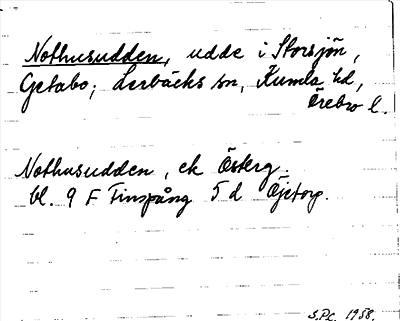 Nothusudden, udde i Storsjön,
Getabo; Lerbäcks sn, Kumla hd,
Örebro l.
Nothusudden, ek Österg.
bl. 9 F Finspång 5 d Öjetorp.
S.Pc. 1958.